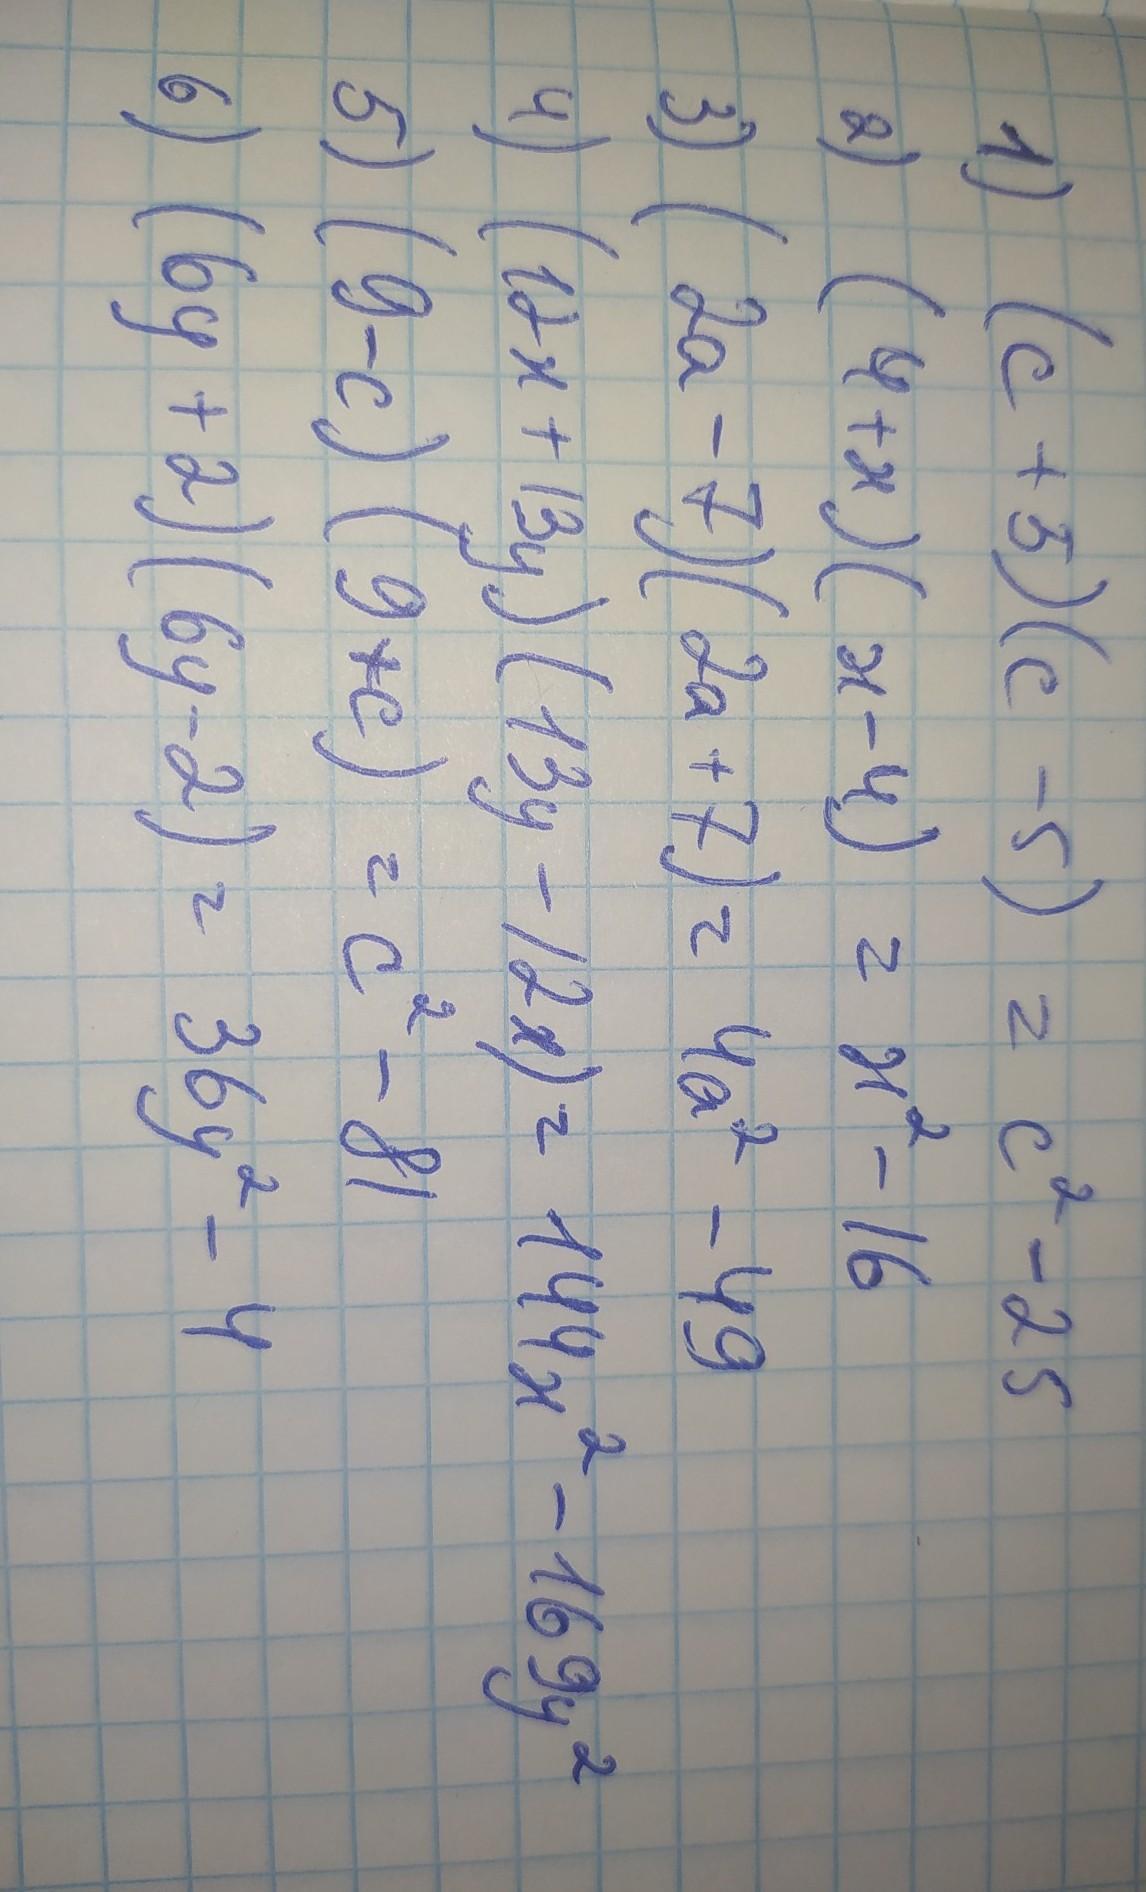 1) (c + 5)(c - 5) = c² - 25
2) (4+x)(x-4) = x² - 16
3) (2a - 7)(2a + 7) = 4a² - 49
4) (12x + 13y)(13y - 12x) = 144x² - 169y²
5) (9-c)(9+c) = c² - 81
6) (6y + 2)(6y - 2) = 36y² - 4